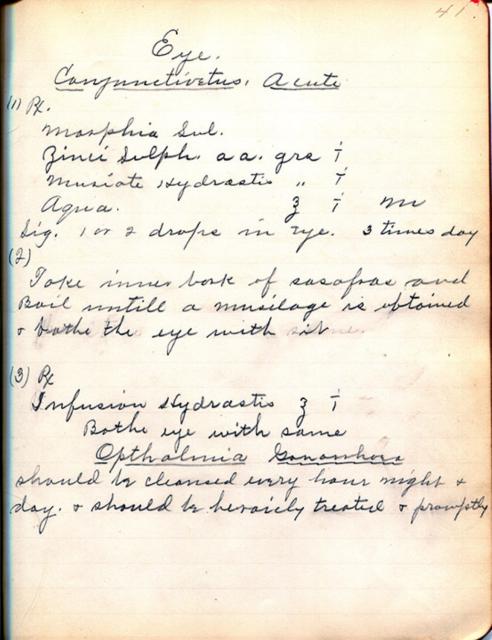 41.
Eye.
Conjunctivetus, Acute
(1) Rx.
Morphia Sul.
Zinci Sulph. a a. grs i
Muriate Hydrastis " i
Aqua. ℥ i M
Sig. 1 or 2 drops in eye. 3 times day
(2)
Take inner bark of sasafras and
Boil untill a musilage is obtained
& bathe the eye with it
(3) Rx
Infusion Hydrastis ℥ i
Bathe eye with same
Opthalmia Gonorrhoea
should be cleansed every hour night &
day. & should be heroicly treated & promptly